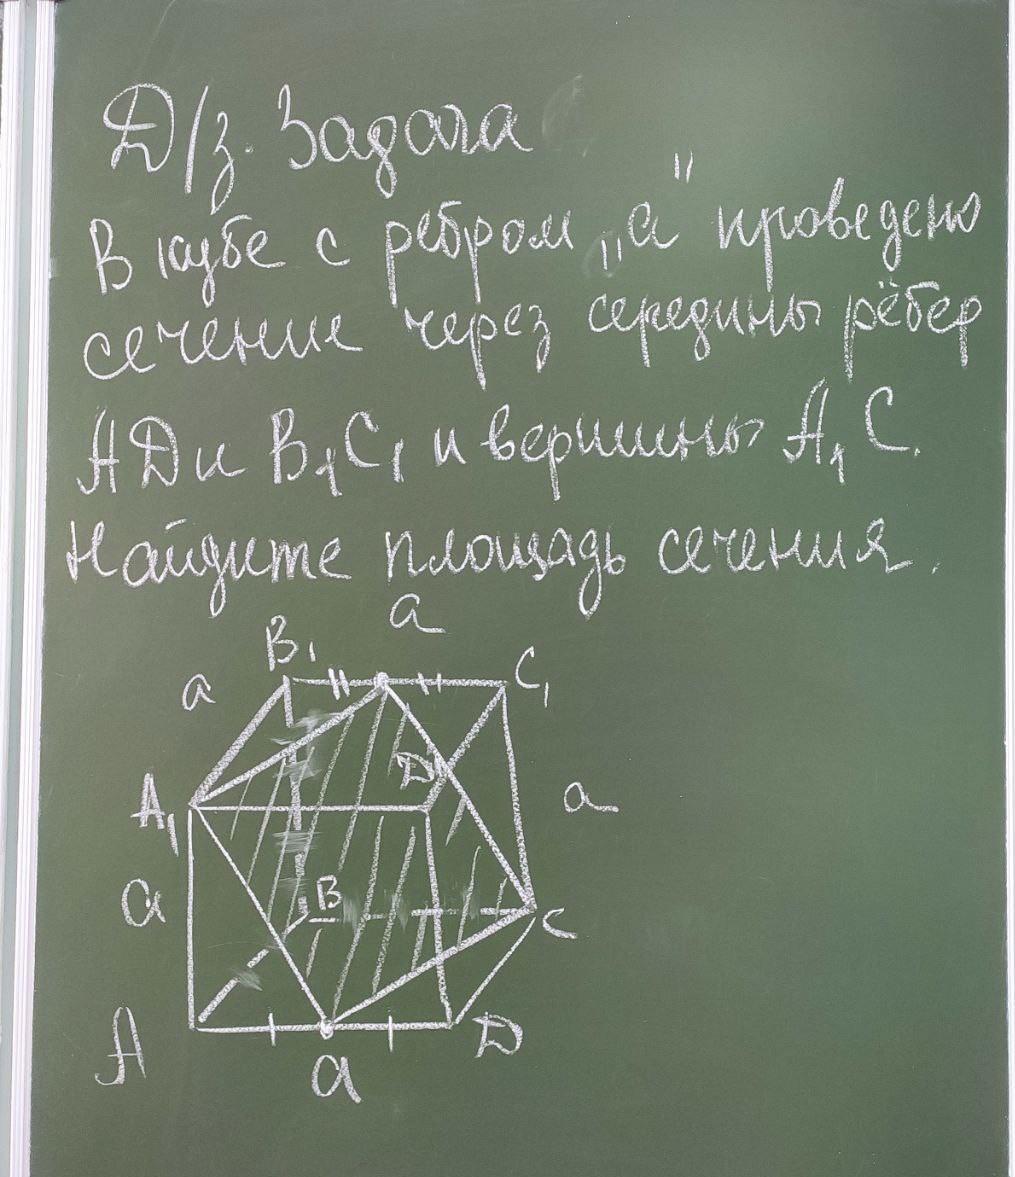 Д/з. Задача
В кубе с ребром „а" проведено
сечение через середины рёбер
АД и В₁С₁ и вершины А₁ С.
Найдите площадь сечения.
a
B₁
C₁
a
D
A₁
a
a
B
C
A
a
D